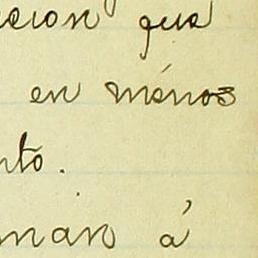 cion que
en ménos
nto.
man á